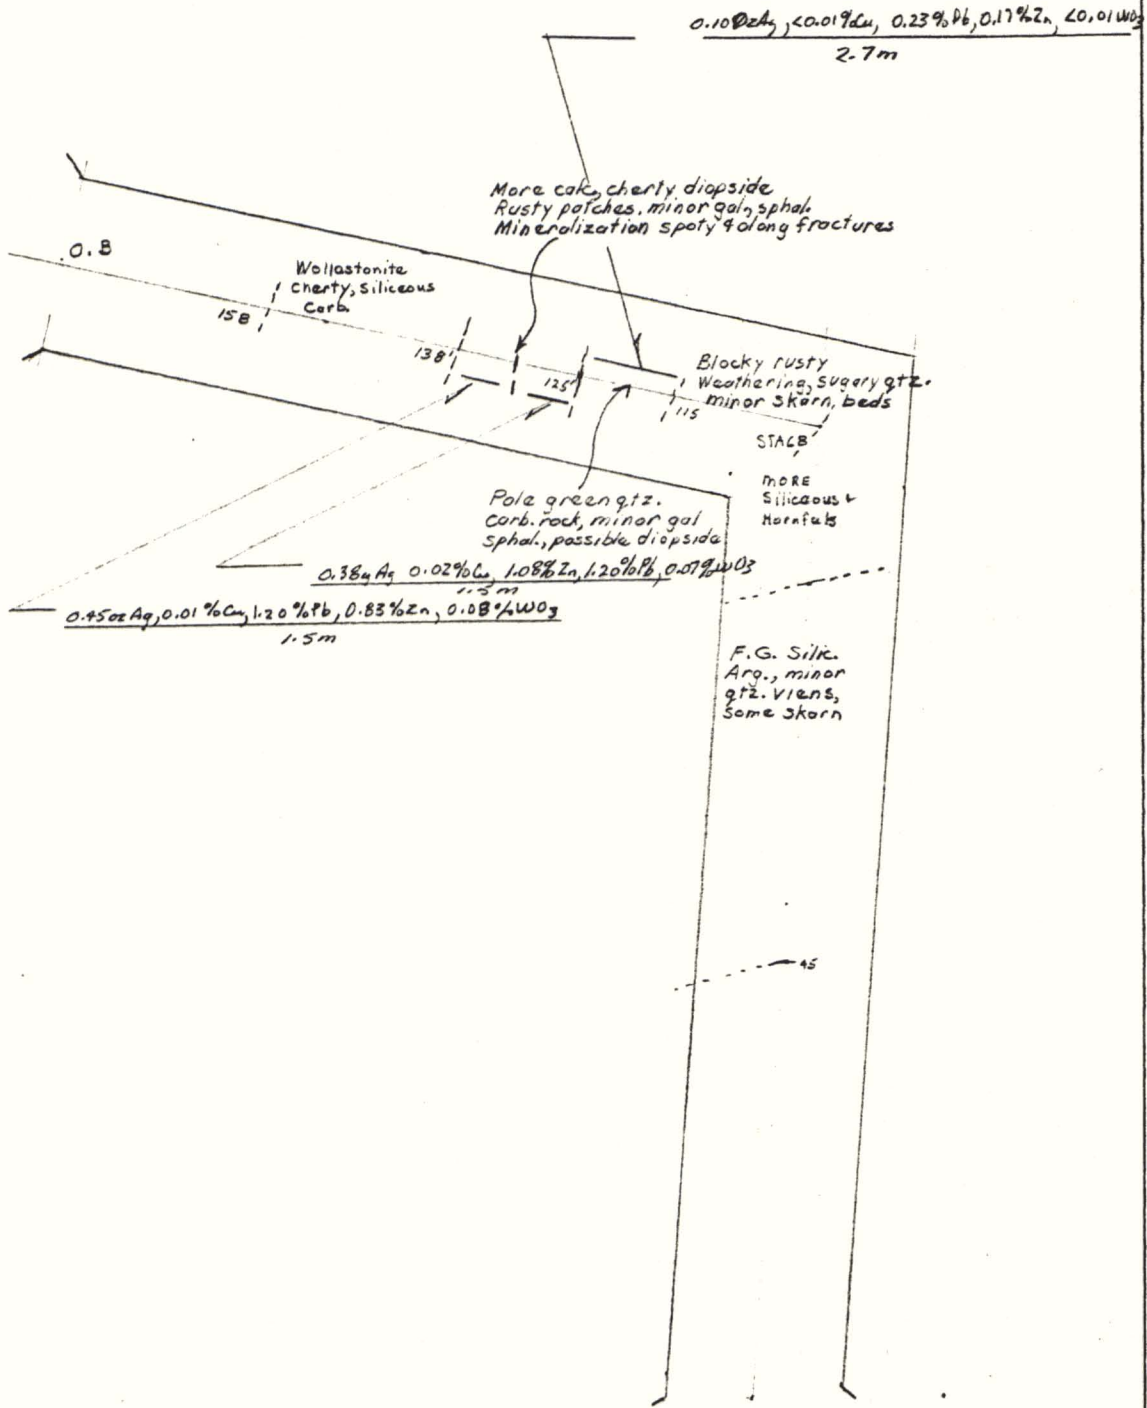 0.10 Oz Ag, <0.01%Cu, 0.23%Pb, 0.17%Zn, <0.01 WO3
2.7m
More calc, cherty diopside
Rusty patches, minor gal, sphal.
Mineralization spoty & along fractures
0.8
Wollastonite
Cherty, Siliceous
Carb.
158
138
125
115
Blocky rusty
Weathering, sugary qtz.
minor skarn, beds
STA
MORE
Siliceous &
Hornfels
Pale green qtz.
Carb. rock, minor gal
sphal., possible diopside
0.38 Ag 0.02%Cu, 1.08%Zn, 1.20%Pb, 0.07%WO3
1.5m
0.45 oz Ag, 0.01%Cu, 1.20%Pb, 0.83%Zn, 0.08%WO3
1.5m
F.G. Silic.
Arg., minor
qtz. Viens,
Some skarn
45